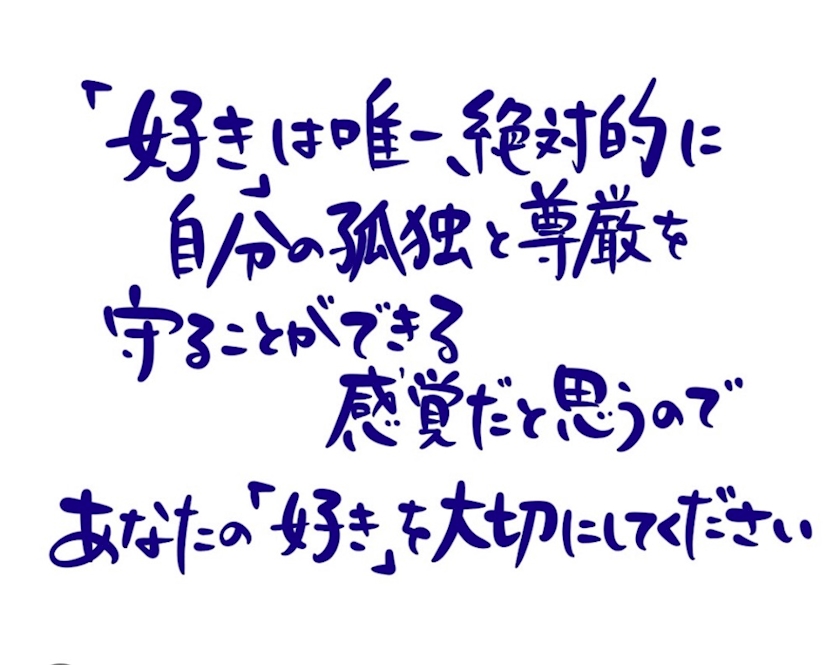 「好き」は唯一、絶対的に
自分の孤独と尊厳を
守ることができる
感覚だと思うので
あなたの「好き」を大切にしてください